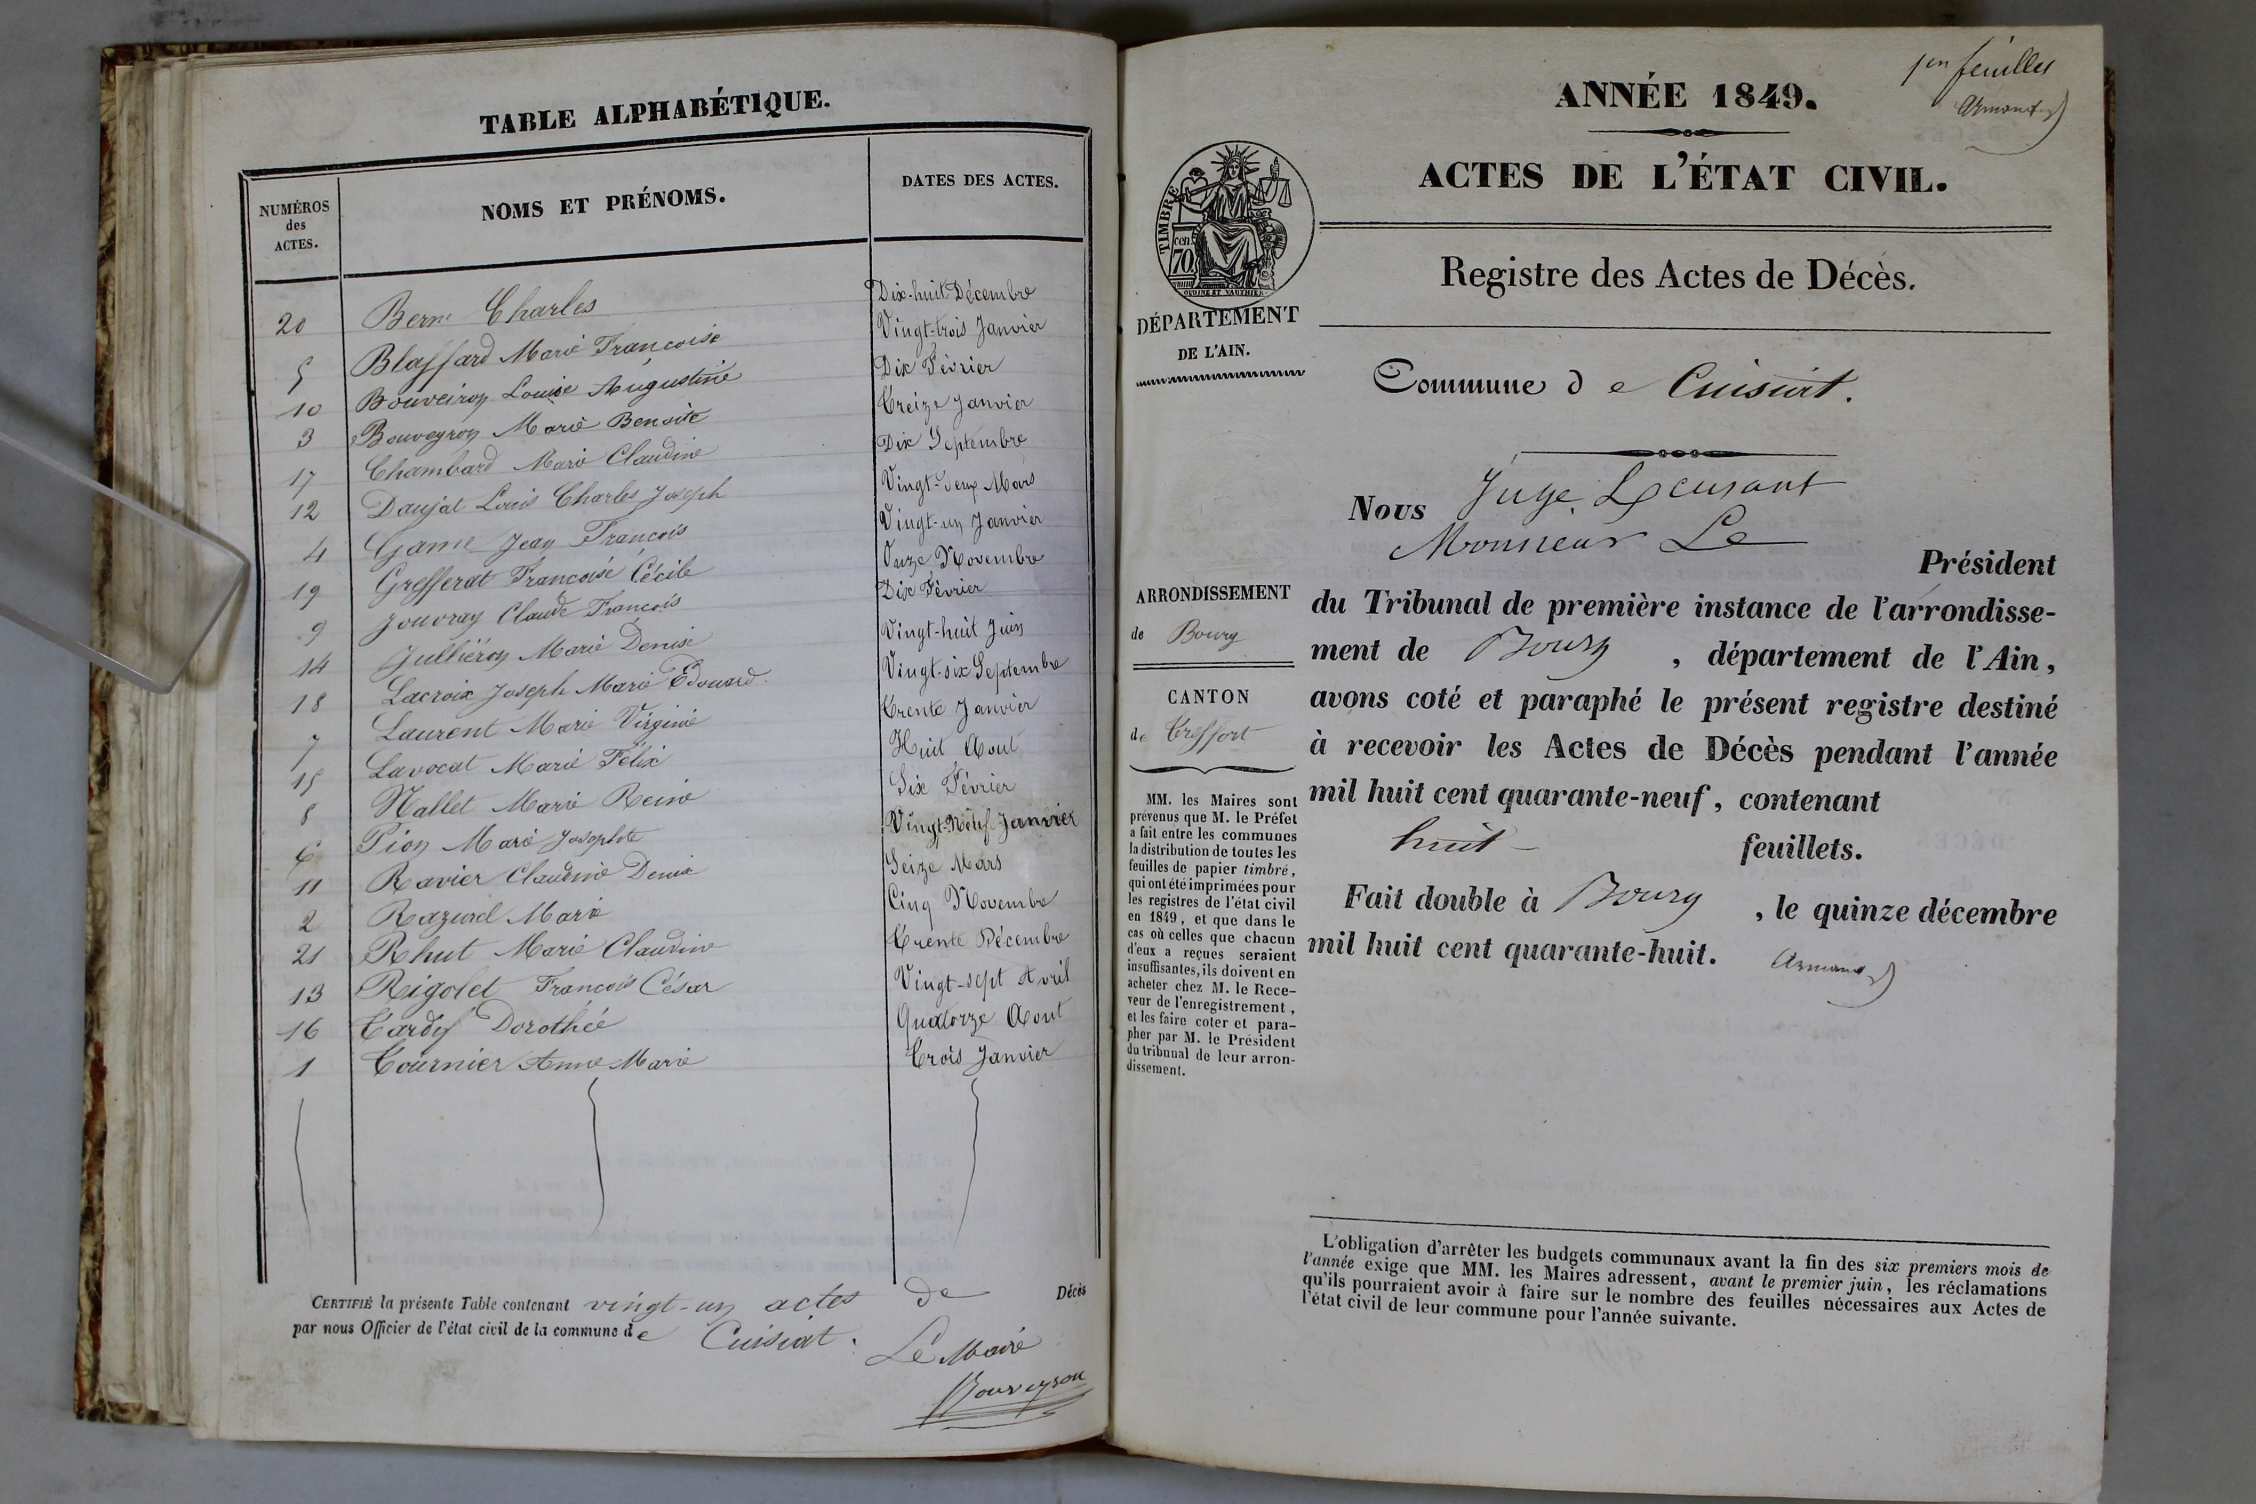 TABLE ALPHABÉTIQUE.
NUMÉROS des ACTES. NOMS ET PRÉNOMS. DATES DES ACTES.
20 Berne Charles Dix-huit Décembre
5 Blaffard Marie Francoise Vingt-trois Janvier
10 Bouveiron Louise Augustine Dix Février
3 Bouveyron Marie Benoite Treize Janvier
17 Chambard Marie Claudine Dix Septembre
12 Daujat Louis Charles Joseph Vingt-deux Mars
4 Game Jean Francois Vingt-un Janvier
19 Grefferat Francoise Cécile Onze Novembre
9 Jouvray Claude Francois Dix Février
14 Jullieron Marie Denise Vingt-huit Juin
18 Lacroix Joseph Marie Edouard Vingt-six Septembre
7 Laurent Marie Virginie Trente Janvier
15 Lavocat Marie Félix Huit Aout
8 Nallet Marie Reine Six Février
6 Pion Marie Josephte Vingt-Neuf Janvier
11 Ravier Claudine Denise Seize Mars
2 Marie Cinq Novembre
21 Rhut Marie Claudine Trente Décembre
13 Rigolet Francois César Vingt-sept Avril
16 Tardif Dorothée Quatorze Aout
1 Tournier Anne Marie Trois Janvier
CERTIFIÉ la présente Table contenant vingt-un actes de Décès
par nous Officier de l'état civil de la commune de Cuisiat.
Le Maire
Bouveyron
1er feuillet
Armand
ANNÉE 1849.
ACTES DE L'ÉTAT CIVIL.
TIMBRE
70 cen
OUDINÉ ET VAUTHIER
Registre des Actes de Décès.
DÉPARTEMENT
DE L'AIN.
Commune de Cuisiat.
Nous Juge
Monsieur Le Président
du Tribunal de première instance de l'arrondisse-
ment de Bourg, département de l'Ain,
avons coté et paraphé le présent registre destiné
à recevoir les Actes de Décès pendant l'année
mil huit cent quarante-neuf, contenant
huit feuillets.
Fait double à Bourg, le quinze décembre
mil huit cent quarante-huit.
Armand
ARRONDISSEMENT
de Bourg
CANTON
de Treffort
MM. les Maires sont
prévenus que M. le Préfet
a fait entre les communes
la distribution de toutes les
feuilles de papier timbré,
qui ont été imprimées pour
les registres de l'état civil
en 1849, et que dans le
cas où celles que chacun
d'eux a reçues seraient
insuffisantes, ils doivent en
acheter chez M. le Rece-
veur de l'enregistrement,
et les faire coter et para-
pher par M. le Président
du tribunal de leur arron-
dissement.
L'obligation d'arrêter les budgets communaux avant la fin des six premiers mois de
l'année exige que MM. les Maires adressent, avant le premier juin, les réclamations
qu'ils pourraient avoir à faire sur le nombre des feuilles nécessaires aux Actes de
l'état civil de leur commune pour l'année suivante.